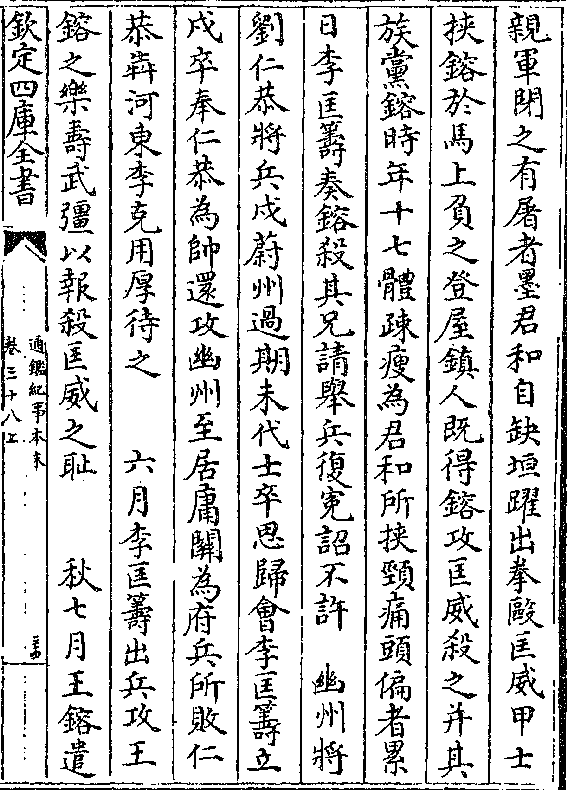 親軍閉之有屠者墨君和自缺垣躍出拳毆匡威甲士
挾鎔於馬上負之登屋鎮人既得鎔攻匡威殺之并其
族黨鎔時年十七體疎瘦為君和所挾頸痛頭偏者累
日李匡籌奏鎔殺其兄請舉兵復寃詔不許　幽州將
劉仁恭將兵戍蔚州過期未代士卒思歸會李匡籌立
戍卒奉仁恭為帥還攻幽州至居庸關為府兵所敗仁
恭犇河東李克用厚待之　六月李匡籌出兵攻王
鎔之樂壽武彊以報殺匡威之恥　秋七月王鎔遣
欽定四庫全書
通鑑紀事本末
卷三十八上